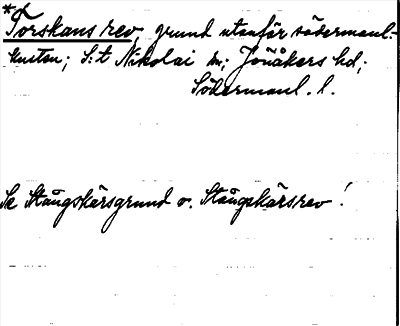 * Torskans rev, grund utanför södermanl.-
kusten; S:t Nikolai sn; Jönåkers hd;
Södermanl. l.
Se Stångskärsgrund o. Stångskärsrev!